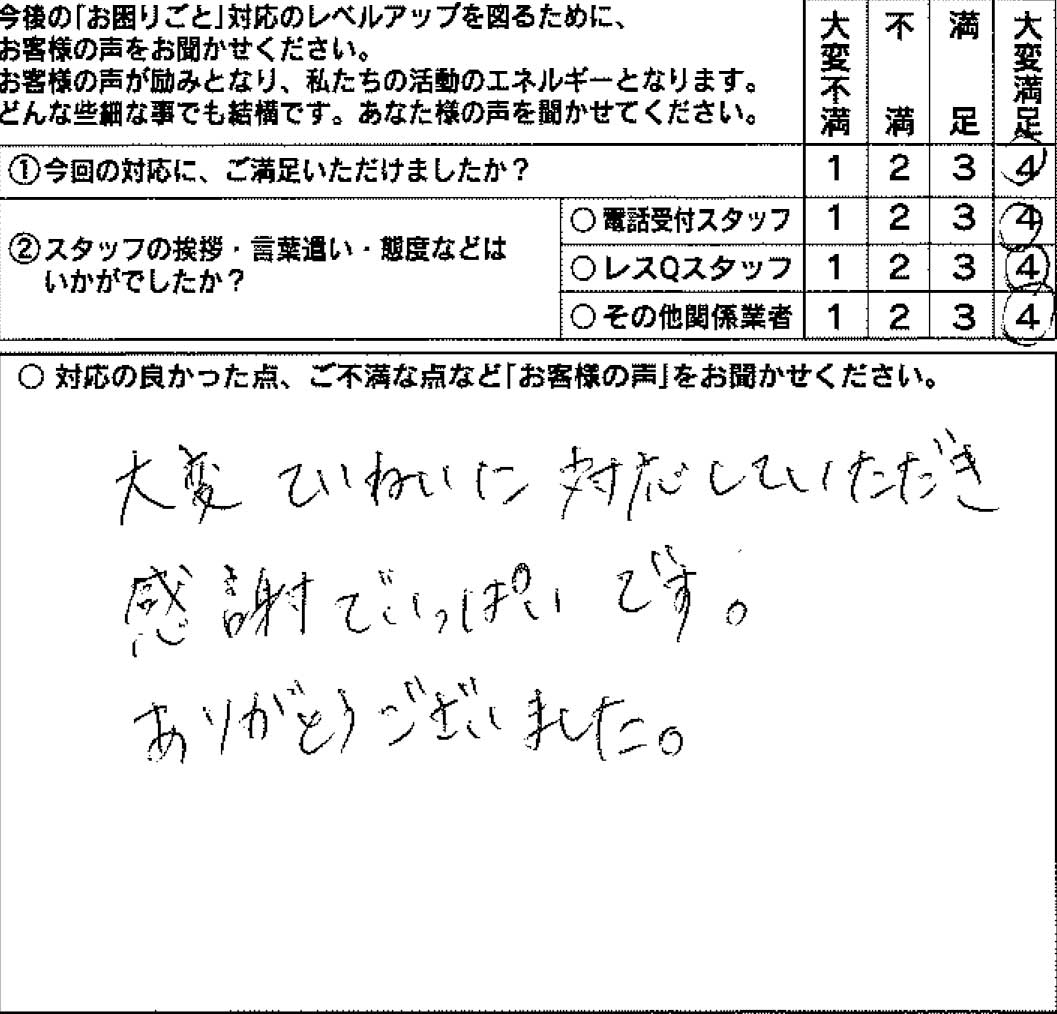 今後の「お困りごと」対応のレベルアップを図るために、
お客様の声をお聞かせください。
お客様の声が励みとなり、私たちの活動のエネルギーとなります。
どんな些細な事でも結構です。あなた様の声を聞かせてください。
大変不満 不満 満足 大変満足
①今回の対応に、ご満足いただけましたか? 1 2 3 4
②スタッフの挨拶・言葉遣い・態度などは
いかがでしたか?
○電話受付スタッフ 1 2 3 4
○レスQスタッフ 1 2 3 4
○その他関係業者 1 2 3 4
○対応の良かった点、ご不満な点など「お客様の声」をお聞かせください。
大変ていねいに対応していただき
感謝でいっぱいです。
ありがとうございました。